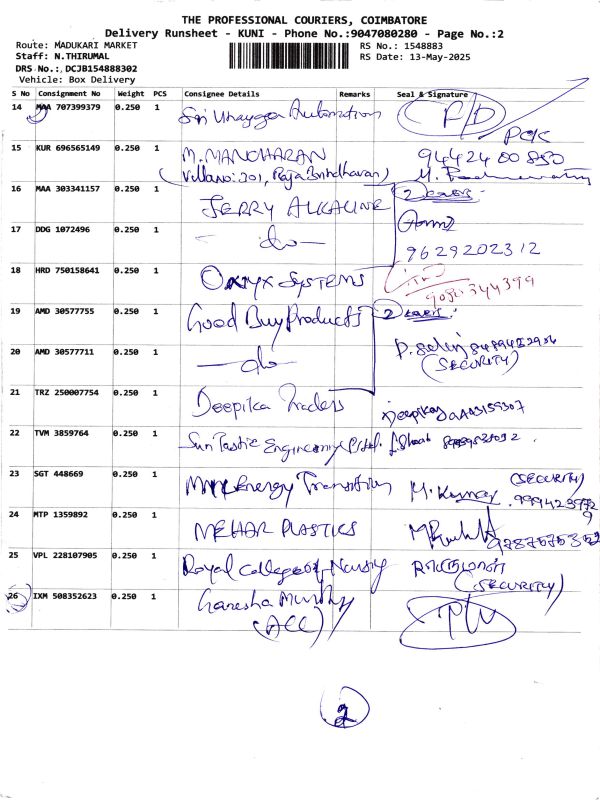 THE PROFESSIONAL COURIERS, COIMBATORE
Delivery Runsheet - KUNI - Phone No.:9047080280 - Page No.:2
Route: MADUKARI MARKET RS No.: 1548883
Staff: N.THIRUMAL RS Date: 13-May-2025
DRS No.: DCJB154888302
Vehicle: Box Delivery
S No Consignment No Weight PCS Consignee Details Remarks Seal & Signature
14 MAA 707399379 0.250 1 Sri Automation P/D
15 KUR 696565149 0.250 1 M. MANOHARAN 9442400850
(Villa no: 201, Raja Brindhavan)
16 MAA 303341157 0.250 1 JERRY ALKALINE 2 Covers.
17 DDG 1072496 0.250 1 — do — 9629202312
18 HRD 750158641 0.250 1 ONYX SYSTEMS
19 AMD 30577755 0.250 1 Good Buy Products 2 Covers.
20 AMD 30577711 0.250 1 — do —
(SECURITY)
21 TRZ 250007754 0.250 1 Deepika Traders
22 TVM 3859764 0.250 1
23 SGT 448669 0.250 1 Energy Transition M. Kumar (SECURITY)
24 MTP 1359892 0.250 1 MEHAR PLASTICS
25 VPL 228107905 0.250 1 Royal College of Nursing
(SECURITY)
26 IXM 508352623 0.250 1 Ganesha Murthy
(ACC)
2